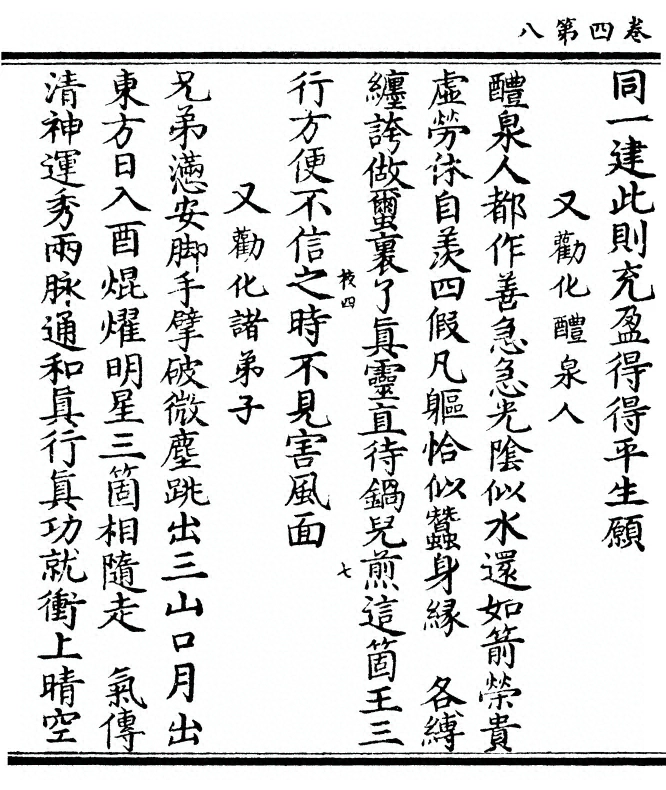 卷四第八
同一建此則充盈得得平生願
又勸化醴泉人
醴泉人都作善急急光陰似水還如箭榮貴
虛勞休自羨四假凡軀恰似蠶身緣　各縛
纏誇做蠒裏了真靈直待鍋兒煎這箇王三
行方便不信之時不見害風面
枝四
七
又勸化諸弟子
兄弟懣安脚手擘破微塵跳出三山口月出
東方日入酉焜燿明星三箇相隨走　氣傳
清神運秀兩脉通和真行真功就衝上晴空